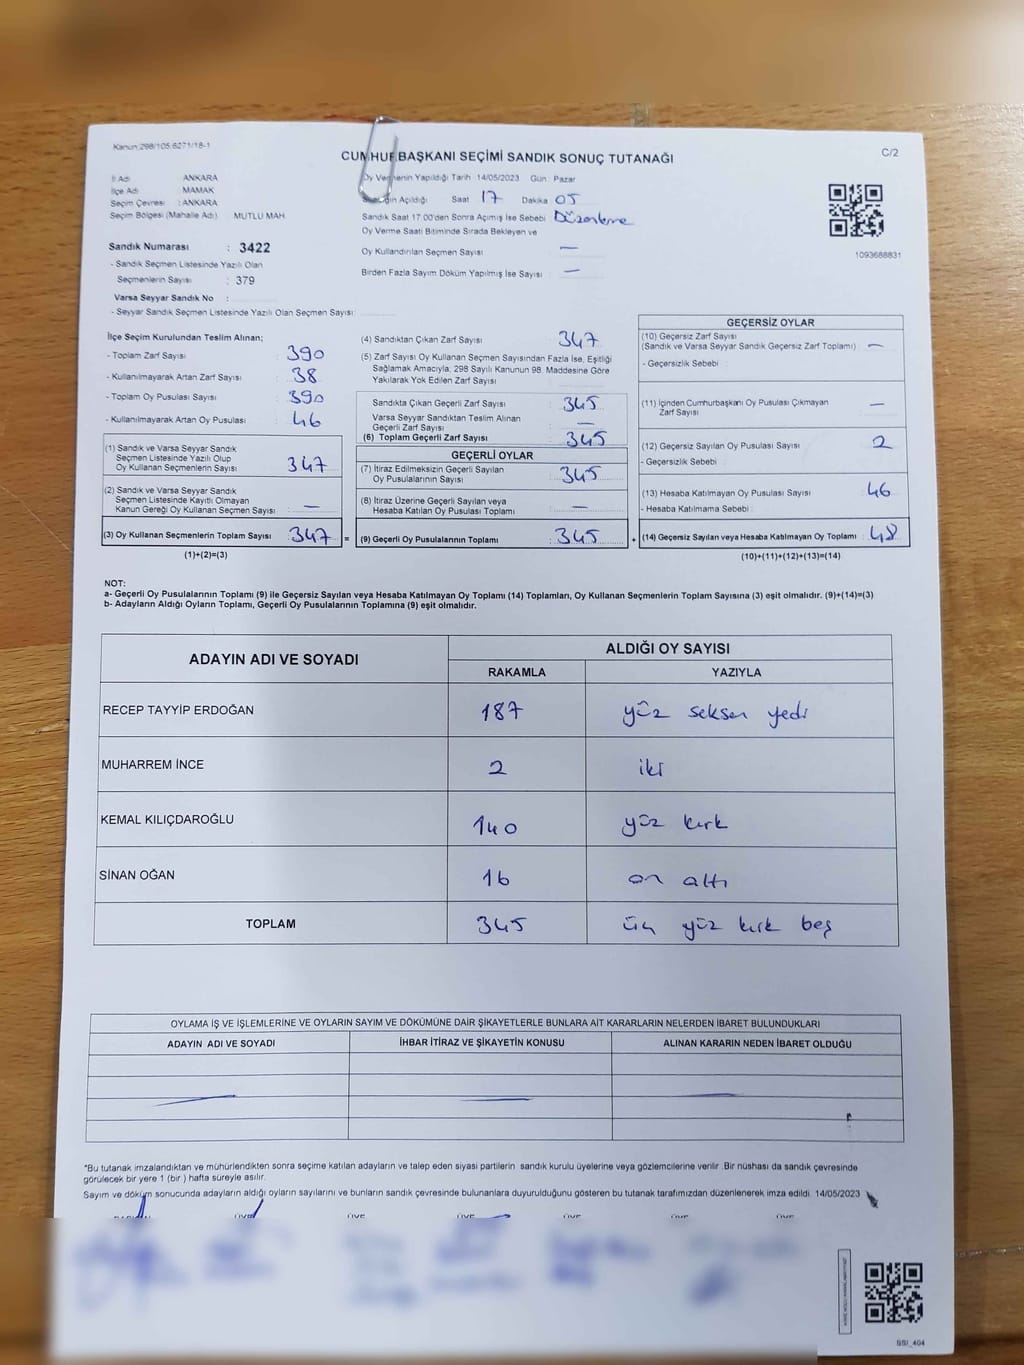 Kanun 298/105.6271/18-1
CUMHURBAŞKANI SEÇİMİ SANDIK SONUÇ TUTANAĞI
C/2
İl Adı : ANKARA
İlçe Adı : MAMAK
Seçim Çevresi : ANKARA
Seçim Bölgesi (Mahalle Adı) MUTLU MAH
Oy Vermenin Yapıldığı Tarih 14/05/2023 Gün Pazar
Sandığın Açıldığı Saat 17 Dakika 05
Sandık Saat 17.00'den Sonra Açılmış İse Sebebi Düzenleme
Oy Verme Saati Bitiminde Sırada Bekleyen ve
Oy Kullandırılan Seçmen Sayısı : —
Birden Fazla Sayım Döküm Yapılmış İse Sayısı : —
1093688831
Sandık Numarası : 3422
- Sandık Seçmen Listesinde Yazılı Olan
Seçmenlerin Sayısı : 379
Varsa Seyyar Sandık No :
- Seyyar Sandık Seçmen Listesinde Yazılı Olan Seçmen Sayısı:
İlçe Seçim Kurulundan Teslim Alınan;
- Toplam Zarf Sayısı : 390
- Kullanılmayarak Artan Zarf Sayısı : 38
- Toplam Oy Pusulası Sayısı : 390
- Kullanılmayarak Artan Oy Pusulası : 46
(1) Sandık ve Varsa Seyyar Sandık
Seçmen Listesinde Yazılı Olup
Oy Kullanan Seçmenlerin Sayısı : 347
(2) Sandık ve Varsa Seyyar Sandık
Seçmen Listesinde Kayıtlı Olmayan
Kanun Gereği Oy Kullanan Seçmen Sayısı : —
(3) Oy Kullanan Seçmenlerin Toplam Sayısı : 347 =
(1)+(2)=(3)
(4) Sandıktan Çıkan Zarf Sayısı : 347
(5) Zarf Sayısı Oy Kullanan Seçmen Sayısından Fazla İse, Eşitliği
Sağlamak Amacıyla, 298 Sayılı Kanunun 98. Maddesine Göre
Yakılarak Yok Edilen Zarf Sayısı :
Sandıkta Çıkan Geçerli Zarf Sayısı : 345
Varsa Seyyar Sandıktan Teslim Alınan
Geçerli Zarf Sayısı : —
(6) Toplam Geçerli Zarf Sayısı : 345
GEÇERLİ OYLAR
(7) İtiraz Edilmeksizin Geçerli Sayılan
Oy Pusulalarının Sayısı : 345
(8) İtiraz Üzerine Geçerli Sayılan veya
Hesaba Katılan Oy Pusulası Toplamı : —
(9) Geçerli Oy Pusulalarının Toplamı : 345 +
GEÇERSİZ OYLAR
(10) Geçersiz Zarf Sayısı
(Sandık ve Varsa Seyyar Sandık Geçersiz Zarf Toplamı) : —
- Geçersizlik Sebebi
(11) İçinden Cumhurbaşkanı Oy Pusulası Çıkmayan
Zarf Sayısı : —
(12) Geçersiz Sayılan Oy Pusulası Sayısı : 2
- Geçersizlik Sebebi
(13) Hesaba Katılmayan Oy Pusulası Sayısı : 46
- Hesaba Katılmama Sebebi
(14) Geçersiz Sayılan veya Hesaba Katılmayan Oy Toplamı : 48
(10)+(11)+(12)+(13)=(14)
NOT:
a- Geçerli Oy Pusulalarının Toplamı (9) ile Geçersiz Sayılan veya Hesaba Katılmayan Oy Toplamı (14) Toplamları, Oy Kullanan Seçmenlerin Toplam Sayısına (3) eşit olmalıdır. (9)+(14)=(3)
b- Adayların Aldığı Oyların Toplamı, Geçerli Oy Pusulalarının Toplamına (9) eşit olmalıdır.
ADAYIN ADI VE SOYADI
ALDIĞI OY SAYISI
RAKAMLA YAZIYLA
RECEP TAYYİP ERDOĞAN 187 yüz seksen yedi
MUHARREM İNCE 2 iki
KEMAL KILIÇDAROĞLU 140 yüz kırk
SİNAN OĞAN 16 on altı
TOPLAM 345 üç yüz kırk beş
OYLAMA İŞ VE İŞLEMLERİNE VE OYLARIN SAYIM VE DÖKÜMÜNE DAİR ŞİKAYETLERLE BUNLARA AİT KARARLARIN NELERDEN İBARET BULUNDUKLARI
ADAYIN ADI VE SOYADI İHBAR İTİRAZ VE ŞİKAYETİN KONUSU ALINAN KARARIN NEDEN İBARET OLDUĞU
*Bu tutanak imzalandıktan ve mühürlendikten sonra seçime katılan adayların ve talep eden siyasi partilerin sandık kurulu üyelerine veya gözlemcilerine verilir. Bir nüshası da sandık çevresinde
görülecek bir yere 1 (bir) hafta süreyle asılır.
Sayım ve döküm sonucunda adayların aldığı oyların sayılarını ve bunların sandık çevresinde bulunanlara duyurulduğunu gösteren bu tutanak tarafımızdan düzenlenerek imza edildi. 14/05/2023
ÜYE ÜYE ÜYE ÜYE ÜYE ÜYE
SSI_404